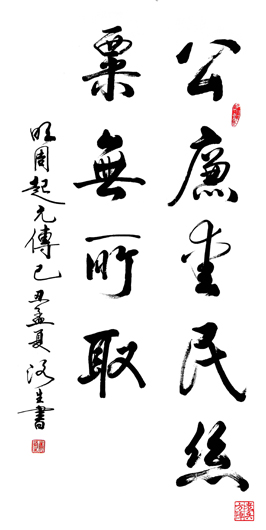 公廉爱民丝
粟無所取
明周起元傳己丑孟夏洛生書